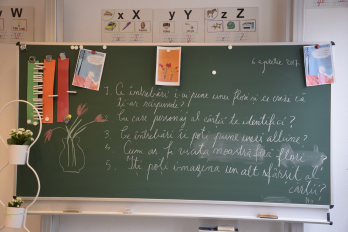 W x X y Y z Z
6 aprilie 2017
1. Ce întrebări i-ai pune unei flori și ce crezi că
ți-ar răspunde?
2. Cu care personaj al cărții te identifici?
3. Ce întrebări te poți pune unei albine?
4. Cum ar fi viața noastră fără flori?
5. Îți poți imagina un alt sfârșit al
cărții?